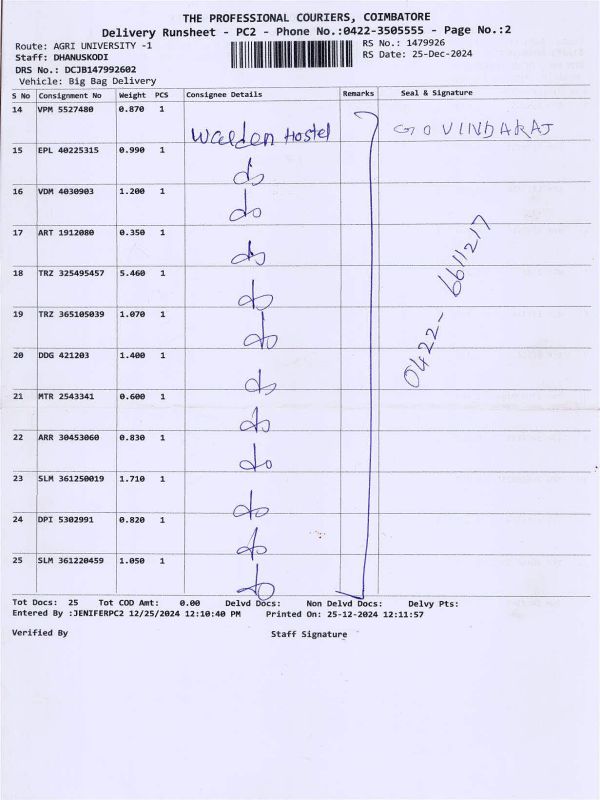 THE PROFESSIONAL COURIERS, COIMBATORE
Delivery Runsheet - PC2 - Phone No.:0422-3505555 - Page No.:2
Route: AGRI UNIVERSITY -1
RS No.: 1479926
Staff: DHANUSKODI
RS Date: 25-Dec-2024
DRS No.: DCJB147992602
Vehicle: Big Bag Delivery
S No Consignment No Weight PCS Consignee Details Remarks Seal & Signature
14 VPM 5527480 0.870 1
Warden Hostel GOVINDARAJ
15 EPL 40225315 0.990 1
do
16 VDM 4030903 1.200 1
do
17 ART 1912080 0.350 1
do
18 TRZ 325495457 5.460 1
do
19 TRZ 365105039 1.070 1
do
0422- 6611217
20 DDG 421203 1.400 1
do
21 MTR 2543341 0.600 1
do
22 ARR 30453060 0.830 1
do
23 SLM 361250019 1.710 1
do
24 DPI 5302991 0.820 1
do
25 SLM 361220459 1.050 1
do
Tot Docs: 25 Tot COD Amt: 0.00 Delvd Docs: Non Delvd Docs: Delvy Pts:
Entered By :JENIFERPC2 12/25/2024 12:10:40 PM Printed On: 25-12-2024 12:11:57
Verified By Staff Signature